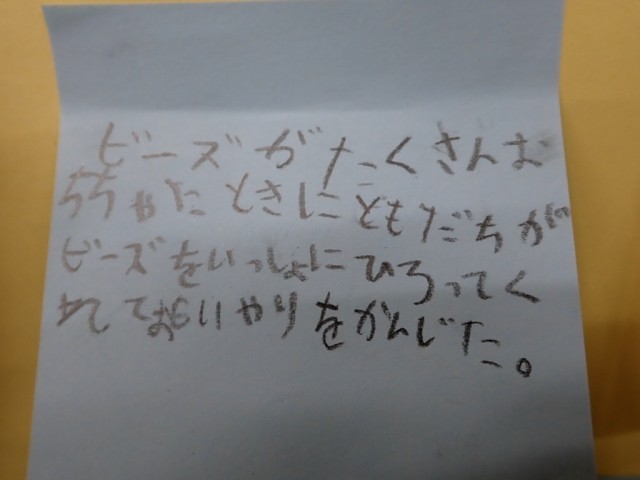 ビーズがたくさんお
ちちゃたときにともだちが
ビーズをいっしょにひろってく
れておもいやりをかんじた。